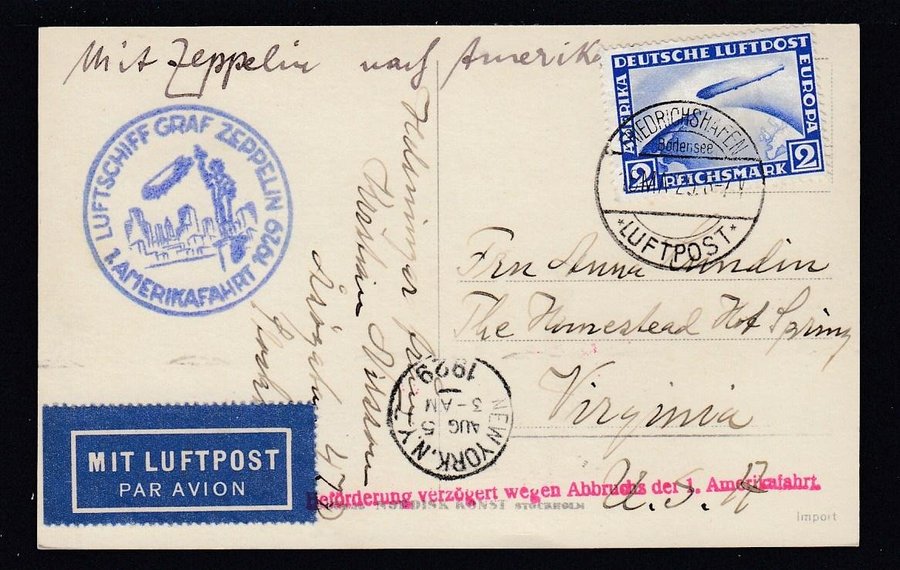 Mit Zeppelin nach Amerika
DEUTSCHE LUFTPOST
AMERIKA
EUROPA
2 REICHSMARK 2
FRIEDRICHSHAFEN
Bodensee
*LUFTPOST*
LUFTSCHIFF GRAF ZEPPELIN
1. AMERIKAFAHRT 1929
Hälsningar från
Nilsson
47
Fru Anna Lundin
The Homestead Hot Spring
Virginia
U. S. A
NEW YORK, N.Y.
AUG 5
3-AM
1929
MIT LUFTPOST
PAR AVION
Beförderung verzögert wegen Abbruchs der 1. Amerikafahrt.
NORDISK KONST STOCKHOLM
Import